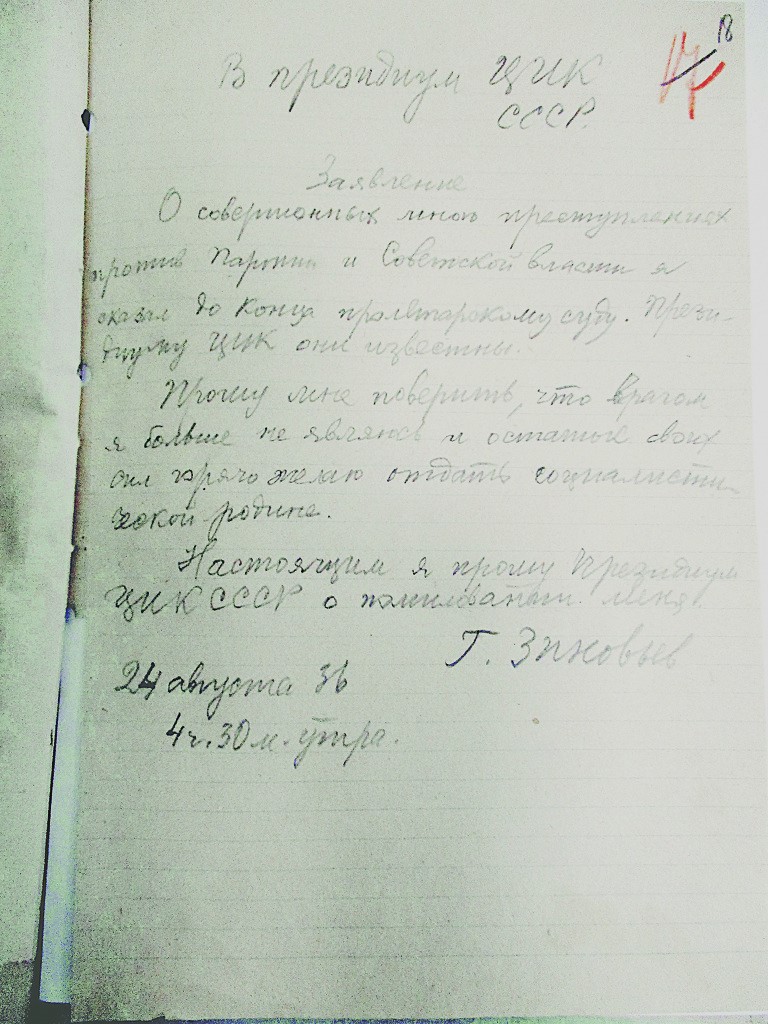 18
17
В президиум ЦИК
СССР.
Заявление
О совершонных мною преступлениях
против Партии и Советской власти я
сказал до конца пролетарскому суду. Прези-
диуму ЦИК они известны.
Прошу мне поверить, что врагом
я больше не являюсь и остатые своих
сил горячо желаю отдать социалисти-
ческой родине.
Настоящим я прошу Президиум
ЦИК СССР о помиловании меня.
Г. Зиновьев
24 августа 36
4 ч. 30 м. утра.